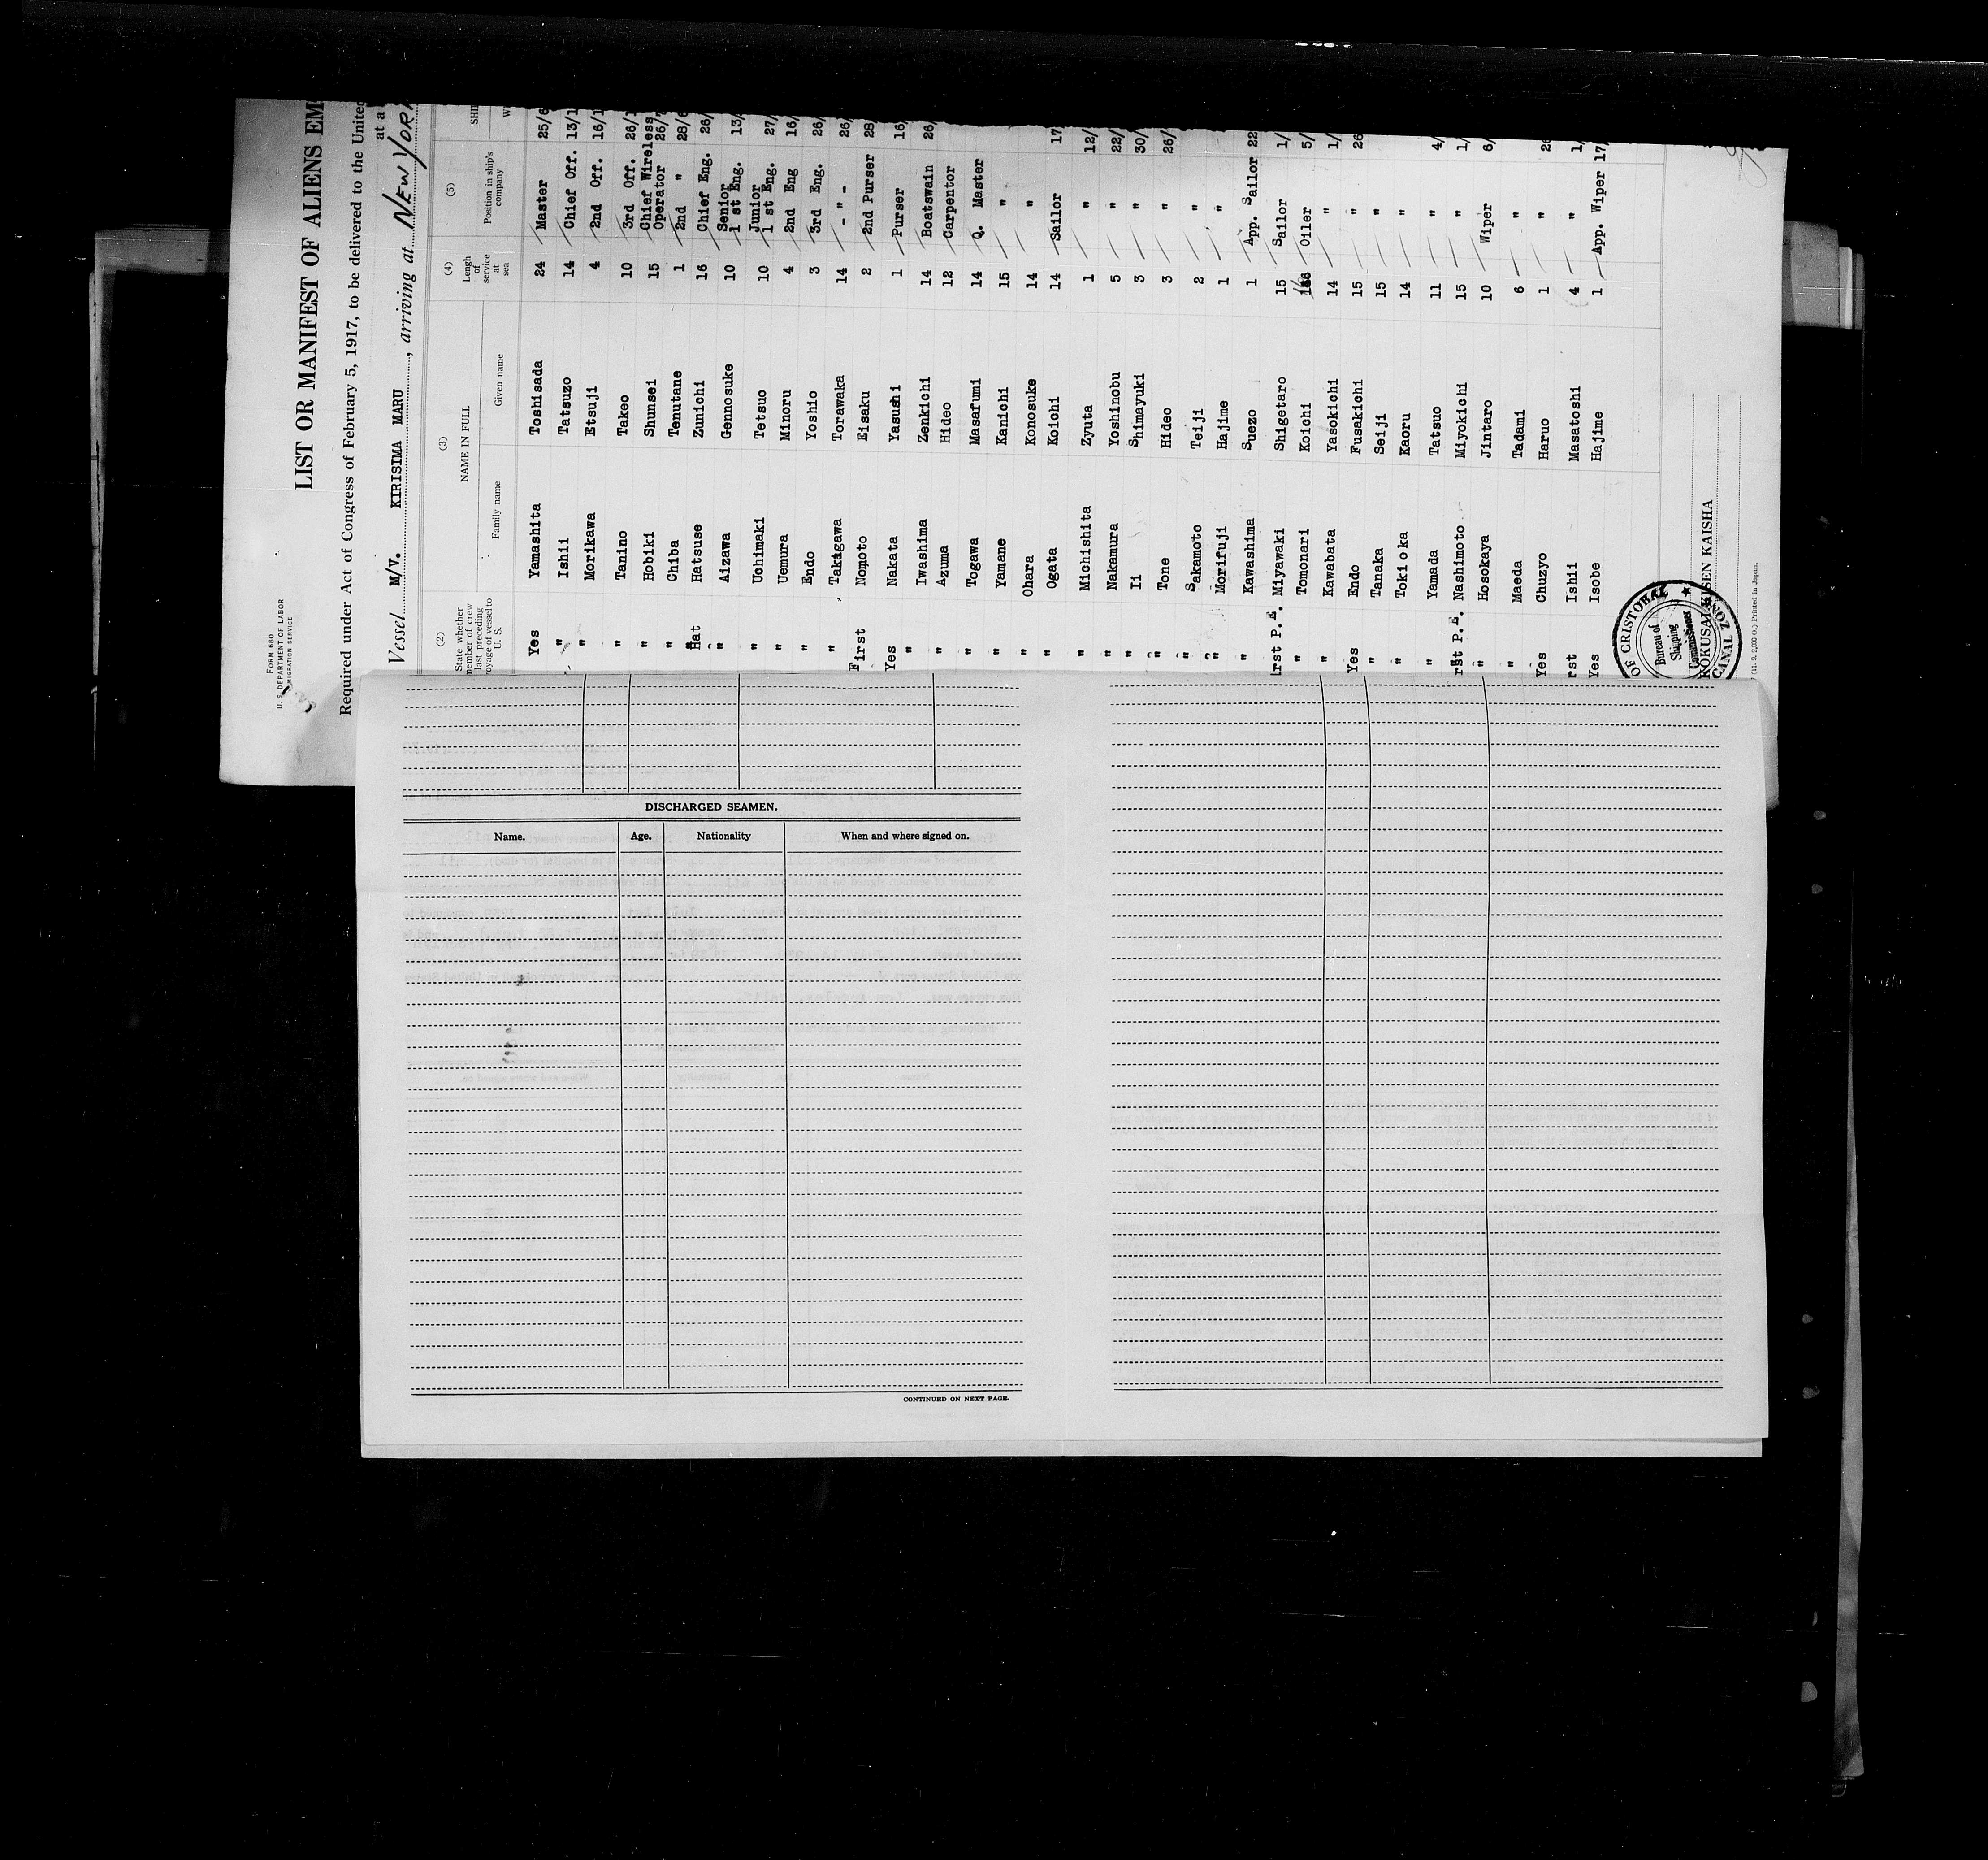 FORM 660
U. S. DEPARTMENT OF LABOR
IMMIGRATION SERVICE
LIST OR MANIFEST OF ALIENS EM
Required under Act of Congress of February 5, 1917, to be delivered to the United
at a
Vessel M/V. KIRISIMA MARU, arriving at NEW YORK
(2) (3) (4) (5)
State whether member of crew last preceding voyage of vessel to U. S.
NAME IN FULL
Family name Given name
Lengh of service at sea
Position in ship's company
SHI
W
Yes Yamashita Toshisada 24 Master 25/6
" Ishii Tatsuzo 14 Chief Off. 13/1
" Morikawa Etsuji 4 2nd Off. 16/1
" Tanino Takeo 10 3rd Off. 26/1
" Hobiki Shunsei 15 Chief Wireless Operator 26/7
" Chiba Tenutane 1 2nd " 28/6
" Hatsuse Zunichi 16 Chief Eng. 26/
" Aizawa Gennosuke 10 Senior 1 st Eng. 13/
" Uchimaki Tetsuo 10 Junior 1 st Eng. 27/
" Uemura Minoru 4 2nd Eng 16/
" Endo Yoshio 3 3rd Eng. 26/
" Takagawa Torawaka 14 - " - 26/
First Nomoto Eisaku 2 2nd Purser 28/
Yes Nakata Yasushi 1 Purser 16/
" Iwashima Zenkichi 14 Boatswain 26/
" Azuma Hideo 12 Carpentor
" Togawa Masafumi 14 Q. Master
" Yamane Kanichi 15 "
" Ohara Konosuke 14 "
" Ogata Koichi 14 Sailor 17
" Michishita Zyuta 1 " 12/
" Nakamura Yoshinobu 5 " 22/
" Ii Shimayuki 3 " 30/
" Tone Hideo 3 " 26/
" Sakamoto Teiji 2 "
" Morifuji Hajime 1 "
" Kawashima Suezo 1 App. Sailor 22
irst P.E. Miyawaki Shigetaro 15 Sailor 1/
" Tomonari Koichi 16 Oiler 5/
" Kawabata Yasokichi 14 " 1/
Yes Endo Fusakichi 15 " 26
" Tanaka Seiji 15 "
" Tokioka Kaoru 14 "
" Yamada Tatsuo 11 " 4/
rst P.E. Nashimoto Miyokichi 15 " 1/
" Hosokaya Jintaro 10 Wiper 6/
" Maeda Tadami 6 "
Yes Chuzyo Haruo 1 "
rst Ishii Masatoshi 4 " 1/
Yes Isobe Hajime 1 App. Wiper 17/
KOKUSAI KISEN KAISHA
OF CRISTOBAL
CANAL ZONE
Bureau of
Shipping
Commissioner
(11. 9. 2,000 O.) Printed in Japan.
DISCHARGED SEAMEN.
Name. Age. Nationality When and where signed on.
CONTINUED ON NEXT PAGE.